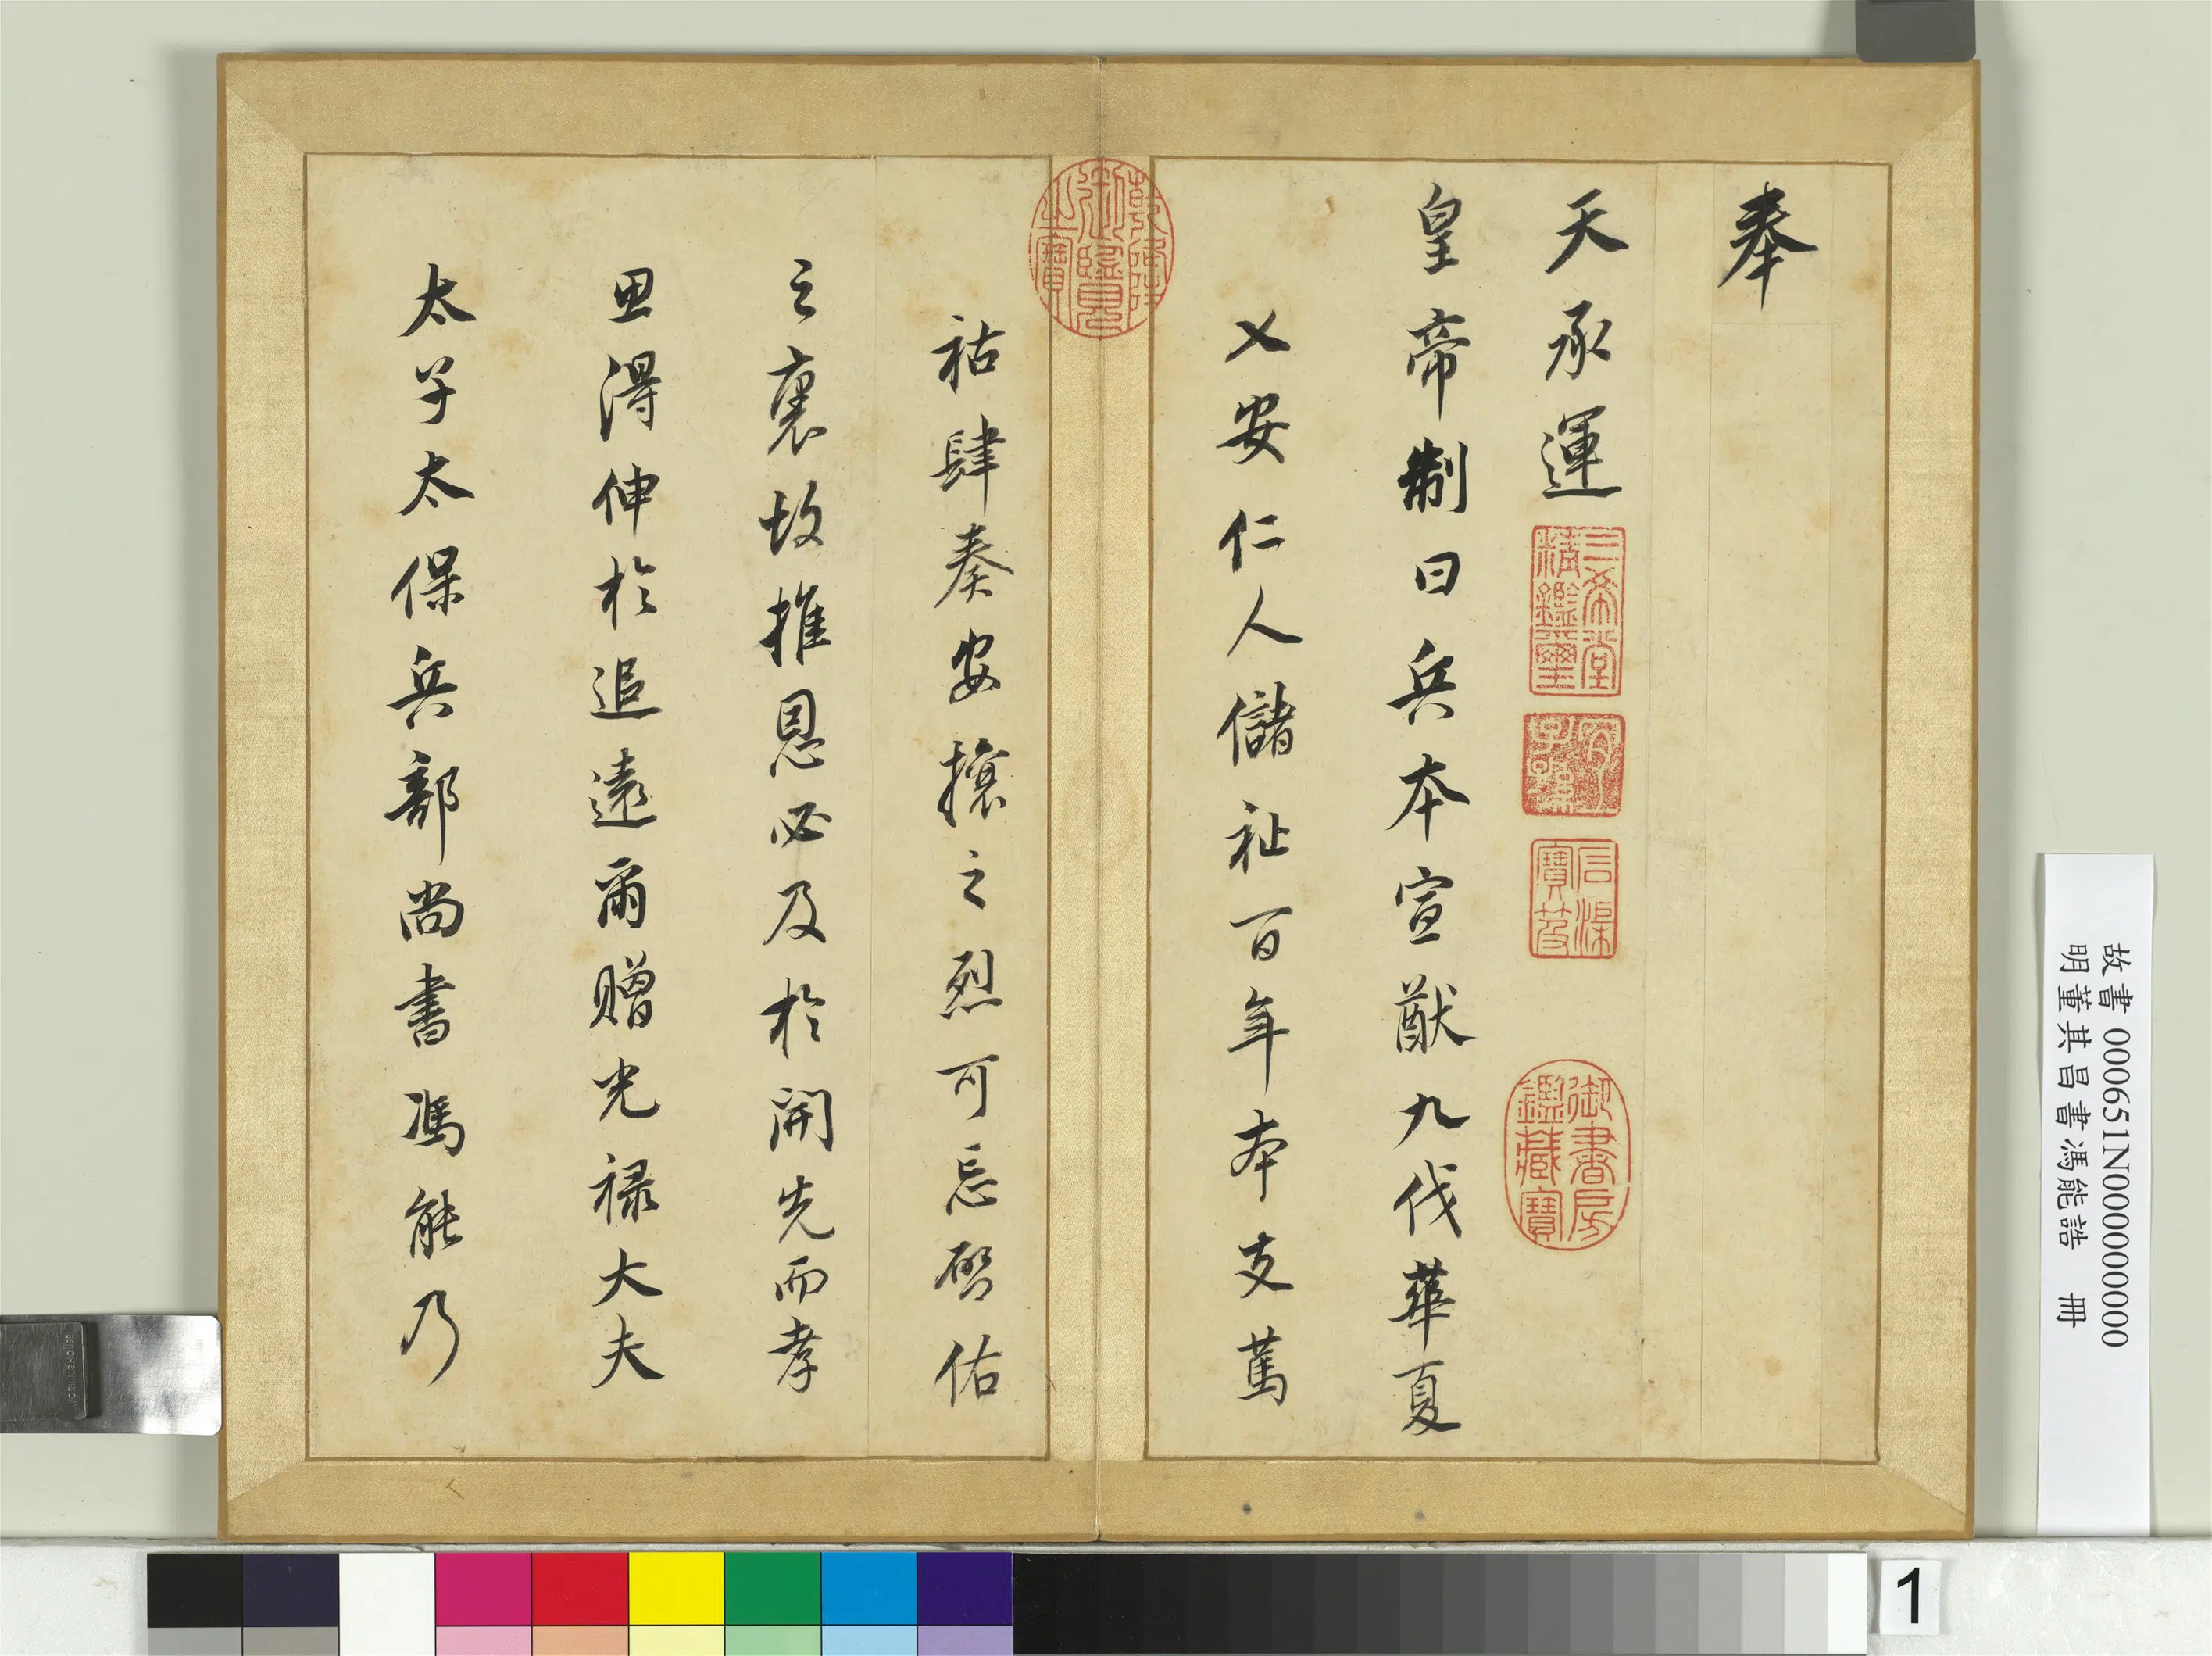 奉
天承運
皇帝制曰兵本宣猷九伐華夏
乂安仁人儲祉百年本支篤
祜肆奏安攘之烈可忘啓佑
之裏故推恩必及於開先而孝
思得伸於追遠爾贈光祿大夫
太子太保兵部尚書馮能乃
三希堂
精鑑璽
宜
子孫
石渠
寶笈
御書房
鑑藏寶
乾隆
御覽
之寶
故書 000651N000000000
明董其昌書馮能誥 冊
1